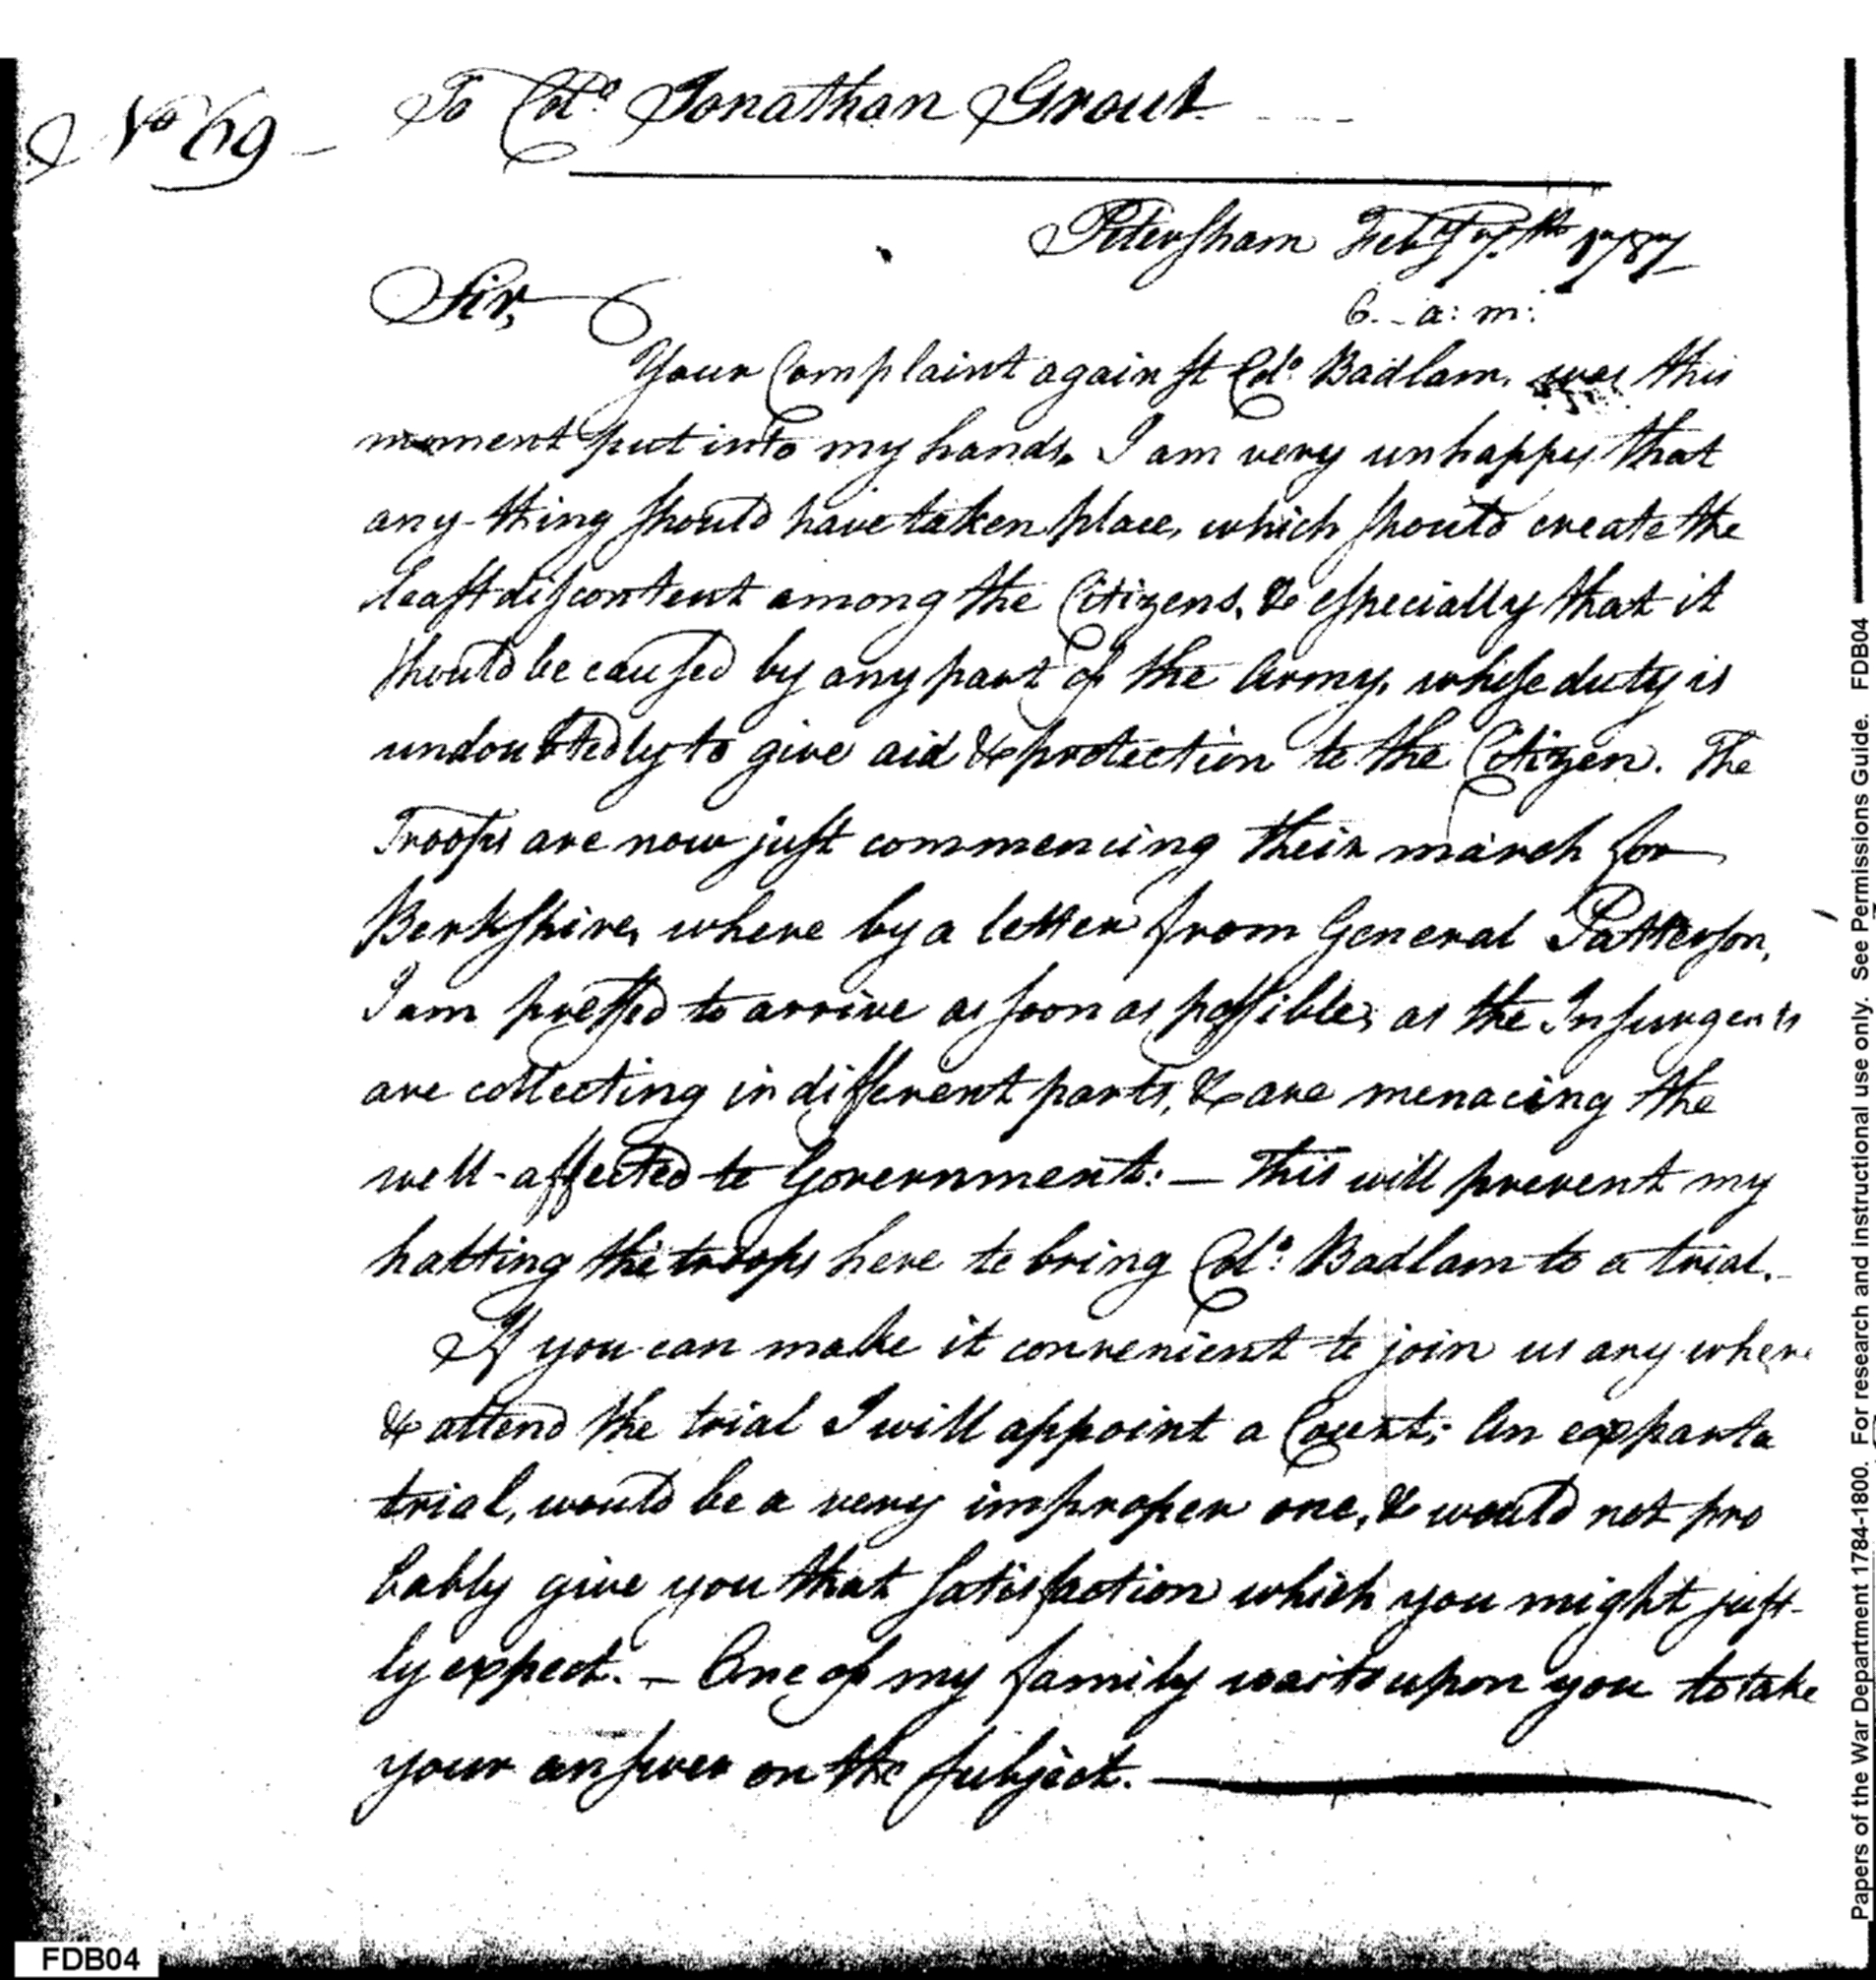 No 69 - To Colo. Jonathan Grout
Petersham Feby 7th 1787
6 - a: m:
Sir,
Your Complaint against Colo. Badlam, was this
moment put into my hands. I am very unhappy that
any-thing should have taken place, which should create the
least discontent among the Citizens, & especially that it
should be caused by any part of the Army, whose duty is
undoubtedly to give aid & protection to the Citizen. The
Troops are now just commencing their march for
Berkshire, where by a letter from General Patterson,
I am pressed to arrive as soon as possible, as the Insurgents
are collecting in different parts, & are menacing the
well-affected to Government: — This will prevent my
halting the troops here to bring Colo. Badlam to a trial.
If you can make it convenient to join us any where
& attend the trial I will appoint a Court; An exparta
trial, would be a very improper one, & would not pro
bably give you that satisfaction which you might just-
ly expect. — One of my family waits upon you to take
your answer on the subject.
Papers of the War Department 1784-1800. For research and instructional use only. See Permissions Guide. FDB04
FDB04